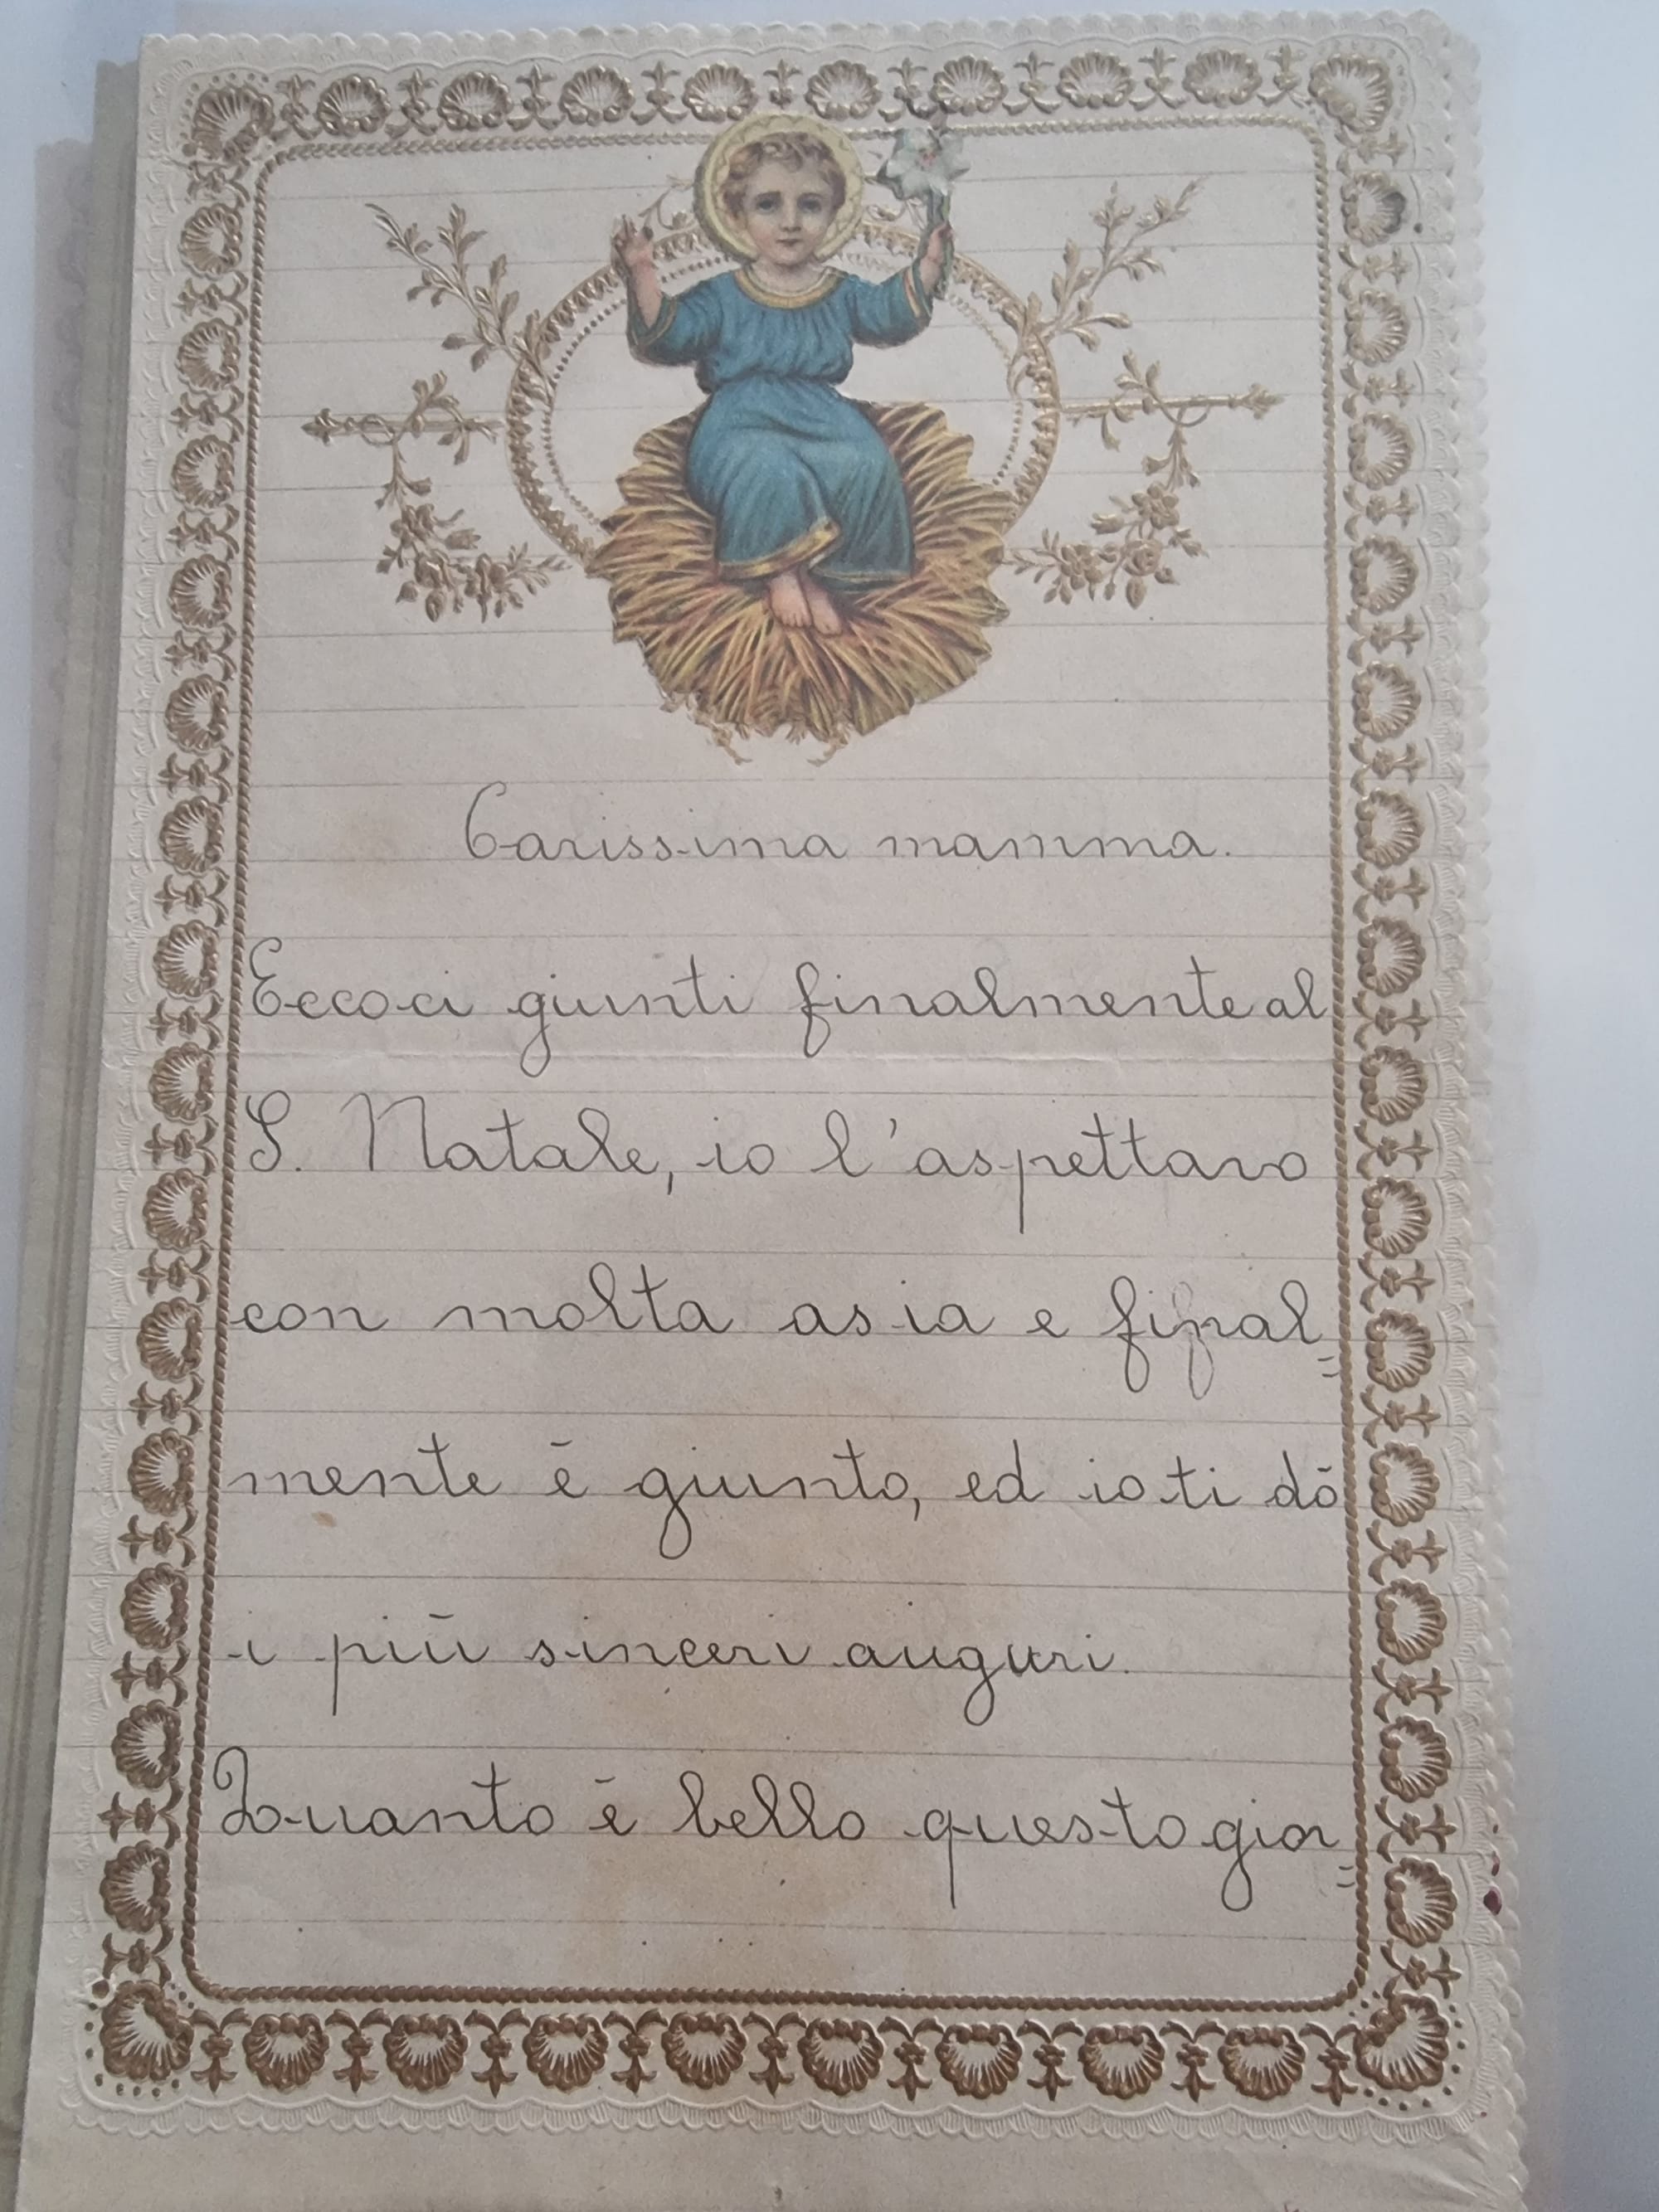 Carissima mamma.
Eccoci giunti finalmente al
S. Natale, io l'aspettavo
con molta asia e final=
mente è giunto, ed io ti dò
i più sinceri auguri.
Quanto è bello questo gior=